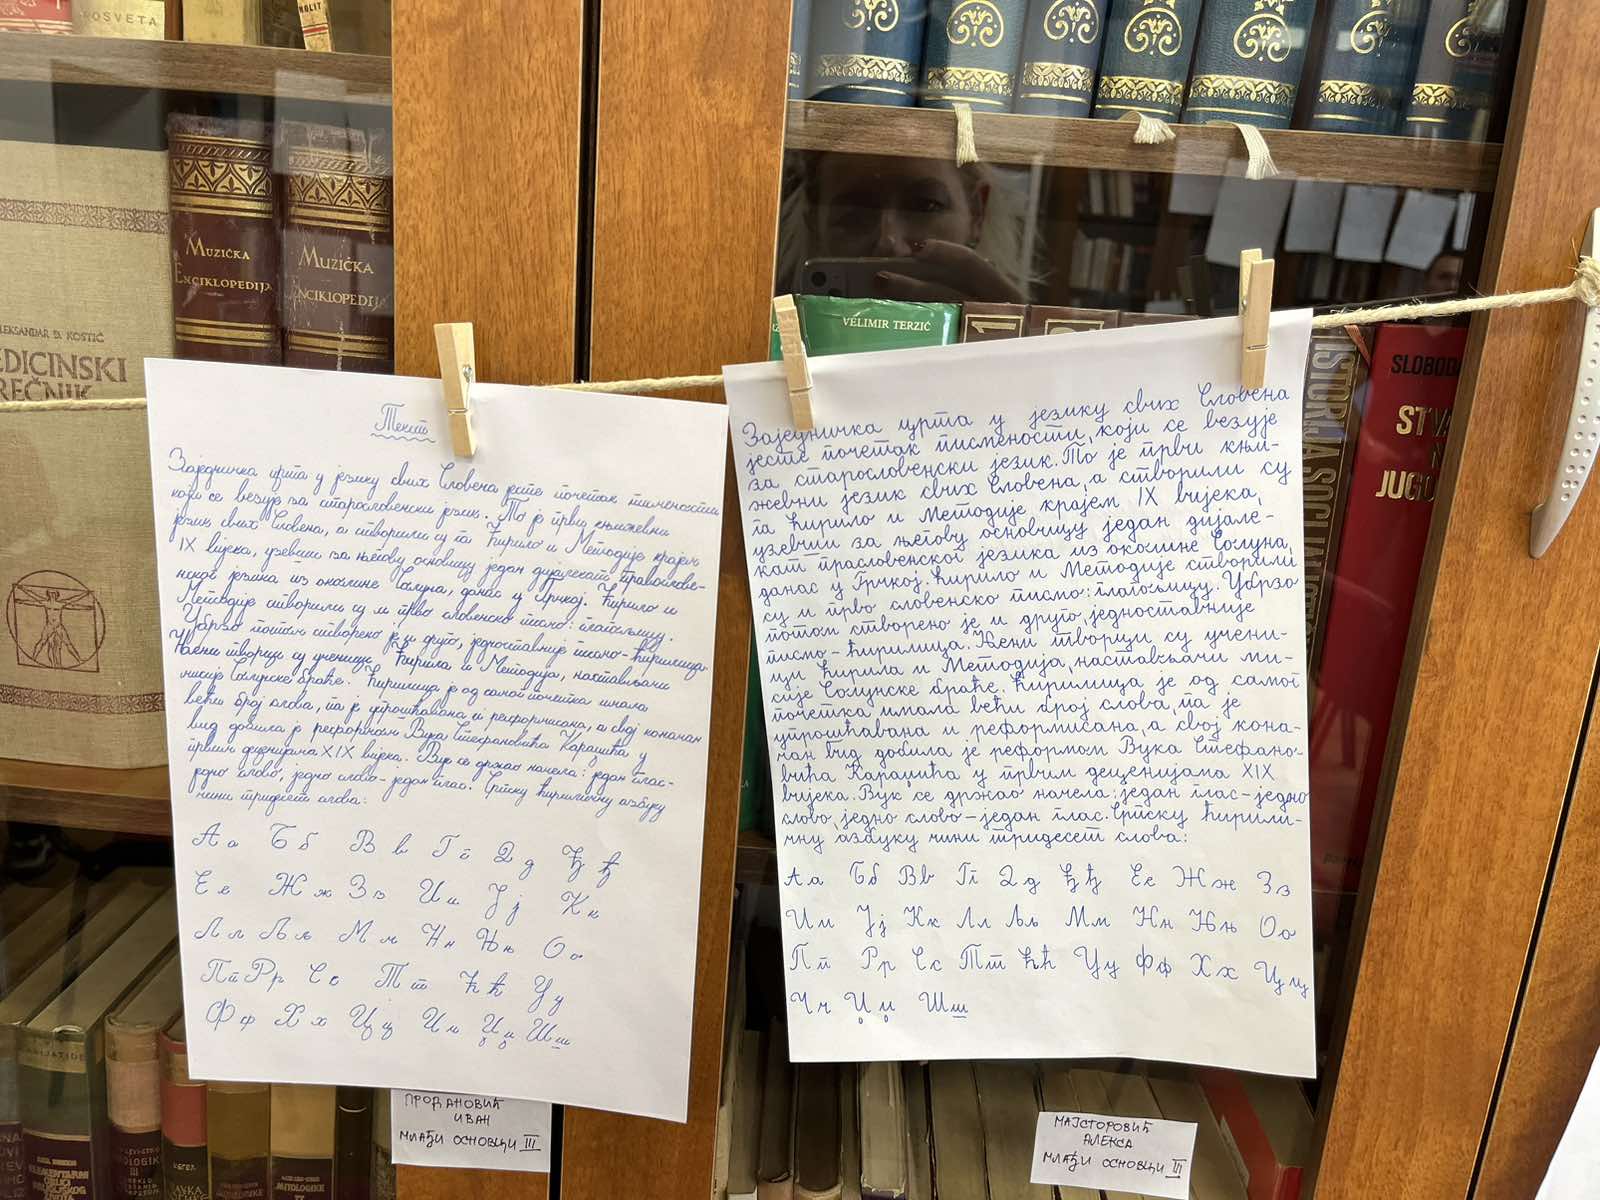 OSVETA
NOLIT
MUZIČKA
ENCIKLOPEDIJA
MUZIČKA
ENCIKLOPEDIJA
ALEKSANDAR Đ. KOSTIĆ
MEDICINSKI
REČNIK
VELIMIR TERZIĆ
ISTORIJA SOCIJA
SLOBODA
STVA
JUGO
Текст
Заједничка црта у језику свих Словена јесте почетак писмености
који се везује за старословенски језик. То је први књижевни
језик свих Словена, а створили су га Ћирило и Методије крајем
IX вијека, узевши за његову основицу један дијалекат прасловен-
ског језика из околине Солуна, данас у Грчкој. Ћирило и
Методије створили су и прво словенско писмо: глагољицу.
Убрзо потом створено је и друго, једноставније писмо-ћирилица.
Њени творци су ученици Ћирила и Методија, настављачи
мисије Солунске браће. Ћирилица је од самог почетка имала
већи број слова, па је упрошћавана и реформисана, а свој коначан
вид добила је реформом Вука Стефановића Караџића у
првим деценијама XIX вијека. Вук се држао начела: један глас-
једно слово, једно слово-један глас. Српску ћириличну азбуку
чини тридесет слова:
А а Б б В в Г г Д д Ђ ђ
Е е Ж ж З з И и Ј ј К к
Л л Љ љ М м Н н Њ њ О о
П п Р р С с Т т Ћ ћ У у
Ф ф Х х Ц ц Ч ч Џ џ Ш ш
Заједничка црта у језику свих Словена
јесте почетак писмености, који се везује
за старословенски језик. То је први књи-
жевни језик свих Словена, а створили су
га Ћирило и Методије крајем IX вијека,
узевши за његову основицу један дијале-
кат прасловенског језика из околине Солуна,
данас у Грчкој. Ћирило и Методије створили
су и прво словенско писмо: глагољицу. Убрзо
потом створено је и друго, једноставније
писмо-ћирилица. Њени творци су учени-
ци Ћирила и Методија, настављачи ми-
сије Солунске браће. Ћирилица је од самог
почетка имала већи број слова, па је
упрошћавана и реформисана, а свој кона-
чан вид добила је реформом Вука Стефано-
вића Караџића у првим деценијама XIX
вијека. Вук се држао начела: један глас-једно
слово, једно слово-један глас. Српску ћирили-
чну азбуку чини тридесет слова:
Аа Бб Вв Гг Дд Ђђ Ее Жж Зз
Ии Јј Кк Лл Љљ Мм Нн Њњ Оо
Пп Рр Сс Тт Ћћ Уу Фф Хх Цц
Чч Џџ Шш
ПРОДАНОВИЋ
ИВАН
МЛАЂИ ОСНОВЦИ III
МАЈСТОРОВИЋ
АЛЕКСА
МЛАЂИ ОСНОВЦИ III